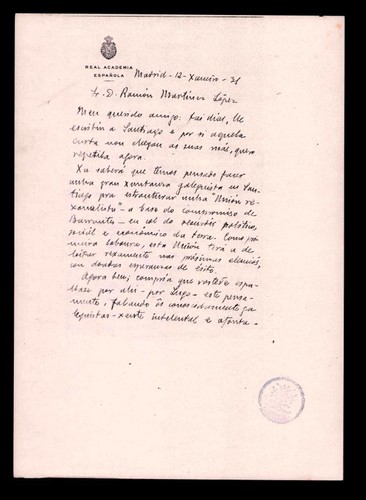 REAL ACADEMIA
ESPAÑOLA
Madrid-12-Xaneiro-31
Sr. D. Ramón Martínez López
Meu querido amigo: fai días, lle
escribín a Santiago e por si aquela
carta non chegou as suas más, quero
repetila agora.
Xa saberá que temos pensado facer
unha gran xuntanza galeguista en San-
tiago pra estruturar unha "Unión re-
xionalista" - a base do compromiso de
Barrantes - en col do resurdir político,
social e económico da terra. Como pri-
meira laboura, esta Unión terá a de
loitar rexamente nas próximas eleccións,
con doutras esperanzas de éisito.
Agora ben, compría que vostede espa-
llase por ahí - por Lugo - este pensa-
mento, falando ôs conecidamente ga-
leguistas - xente intelectual e